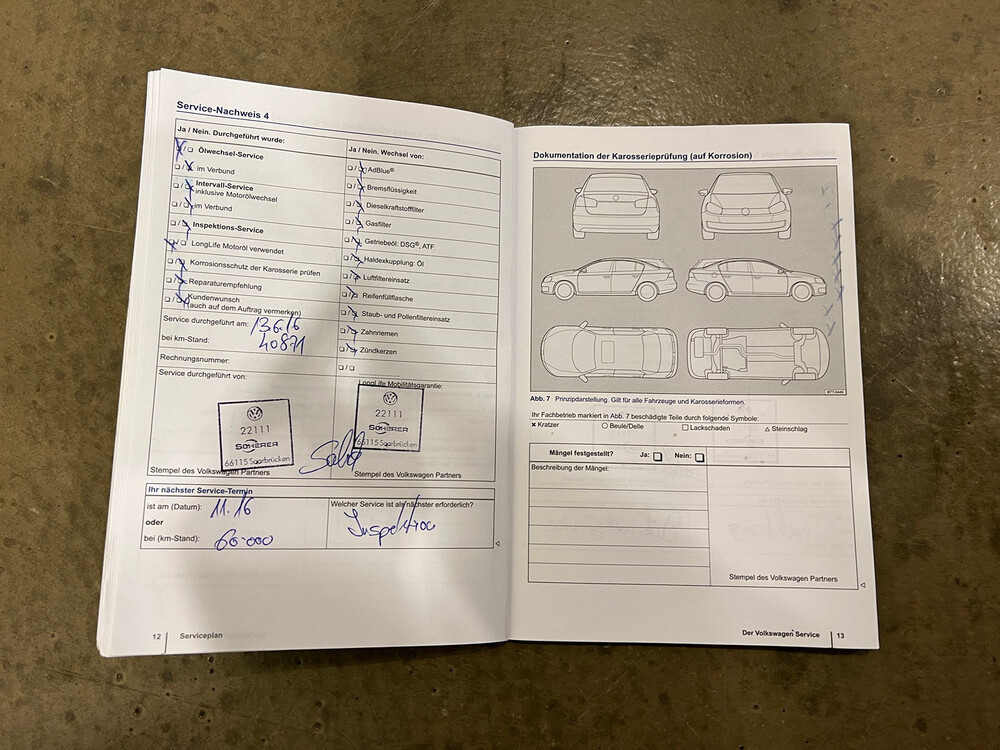 Service-Nachweis 4
Ja / Nein. Durchgeführt wurde:
Ölwechsel-Service
im Verbund
Intervall-Service
inklusive Motorölwechsel
im Verbund
Inspektions-Service
LongLife Motoröl verwendet
Korrosionsschutz der Karosserie prüfen
Reparaturempfehlung
Kundenwunsch
(auch auf dem Auftrag vermerken)
Service durchgeführt am: 13.6.16
bei km-Stand: 40871
Rechnungsnummer:
Service durchgeführt von:
22111
SCHERER
66115 Saarbrücken
Stempel des Volkswagen Partners
Ja / Nein. Wechsel von:
AdBlue®
Bremsflüssigkeit
Dieselkraftstofffilter
Gasfilter
Getriebeöl: DSG®, ATF
Haldexkupplung: Öl
Luftfiltereinsatz
Reifenfüllflasche
Staub- und Pollenfiltereinsatz
Zahnriemen
Zündkerzen
LongLife Mobilitätsgarantie:
22111
SCHERER
66115 Saarbrücken
Stempel des Volkswagen Partners
Ihr nächster Service-Termin
ist am (Datum): 11.16
oder
bei (km-Stand): 60.000
Welcher Service ist als nächster erforderlich?
Inspektion
12 Serviceplan
Dokumentation der Karosserieprüfung (auf Korrosion)
Abb. 7 Prinzipdarstellung. Gilt für alle Fahrzeuge und Karosserieformen.
Ihr Fachbetrieb markiert in Abb. 7 beschädigte Teile durch folgende Symbole:
x Kratzer ○ Beule/Delle □ Lackschaden △ Steinschlag
Mängel festgestellt? Ja: □ Nein: □
Beschreibung der Mängel:
Stempel des Volkswagen Partners
Der Volkswagen Service 13